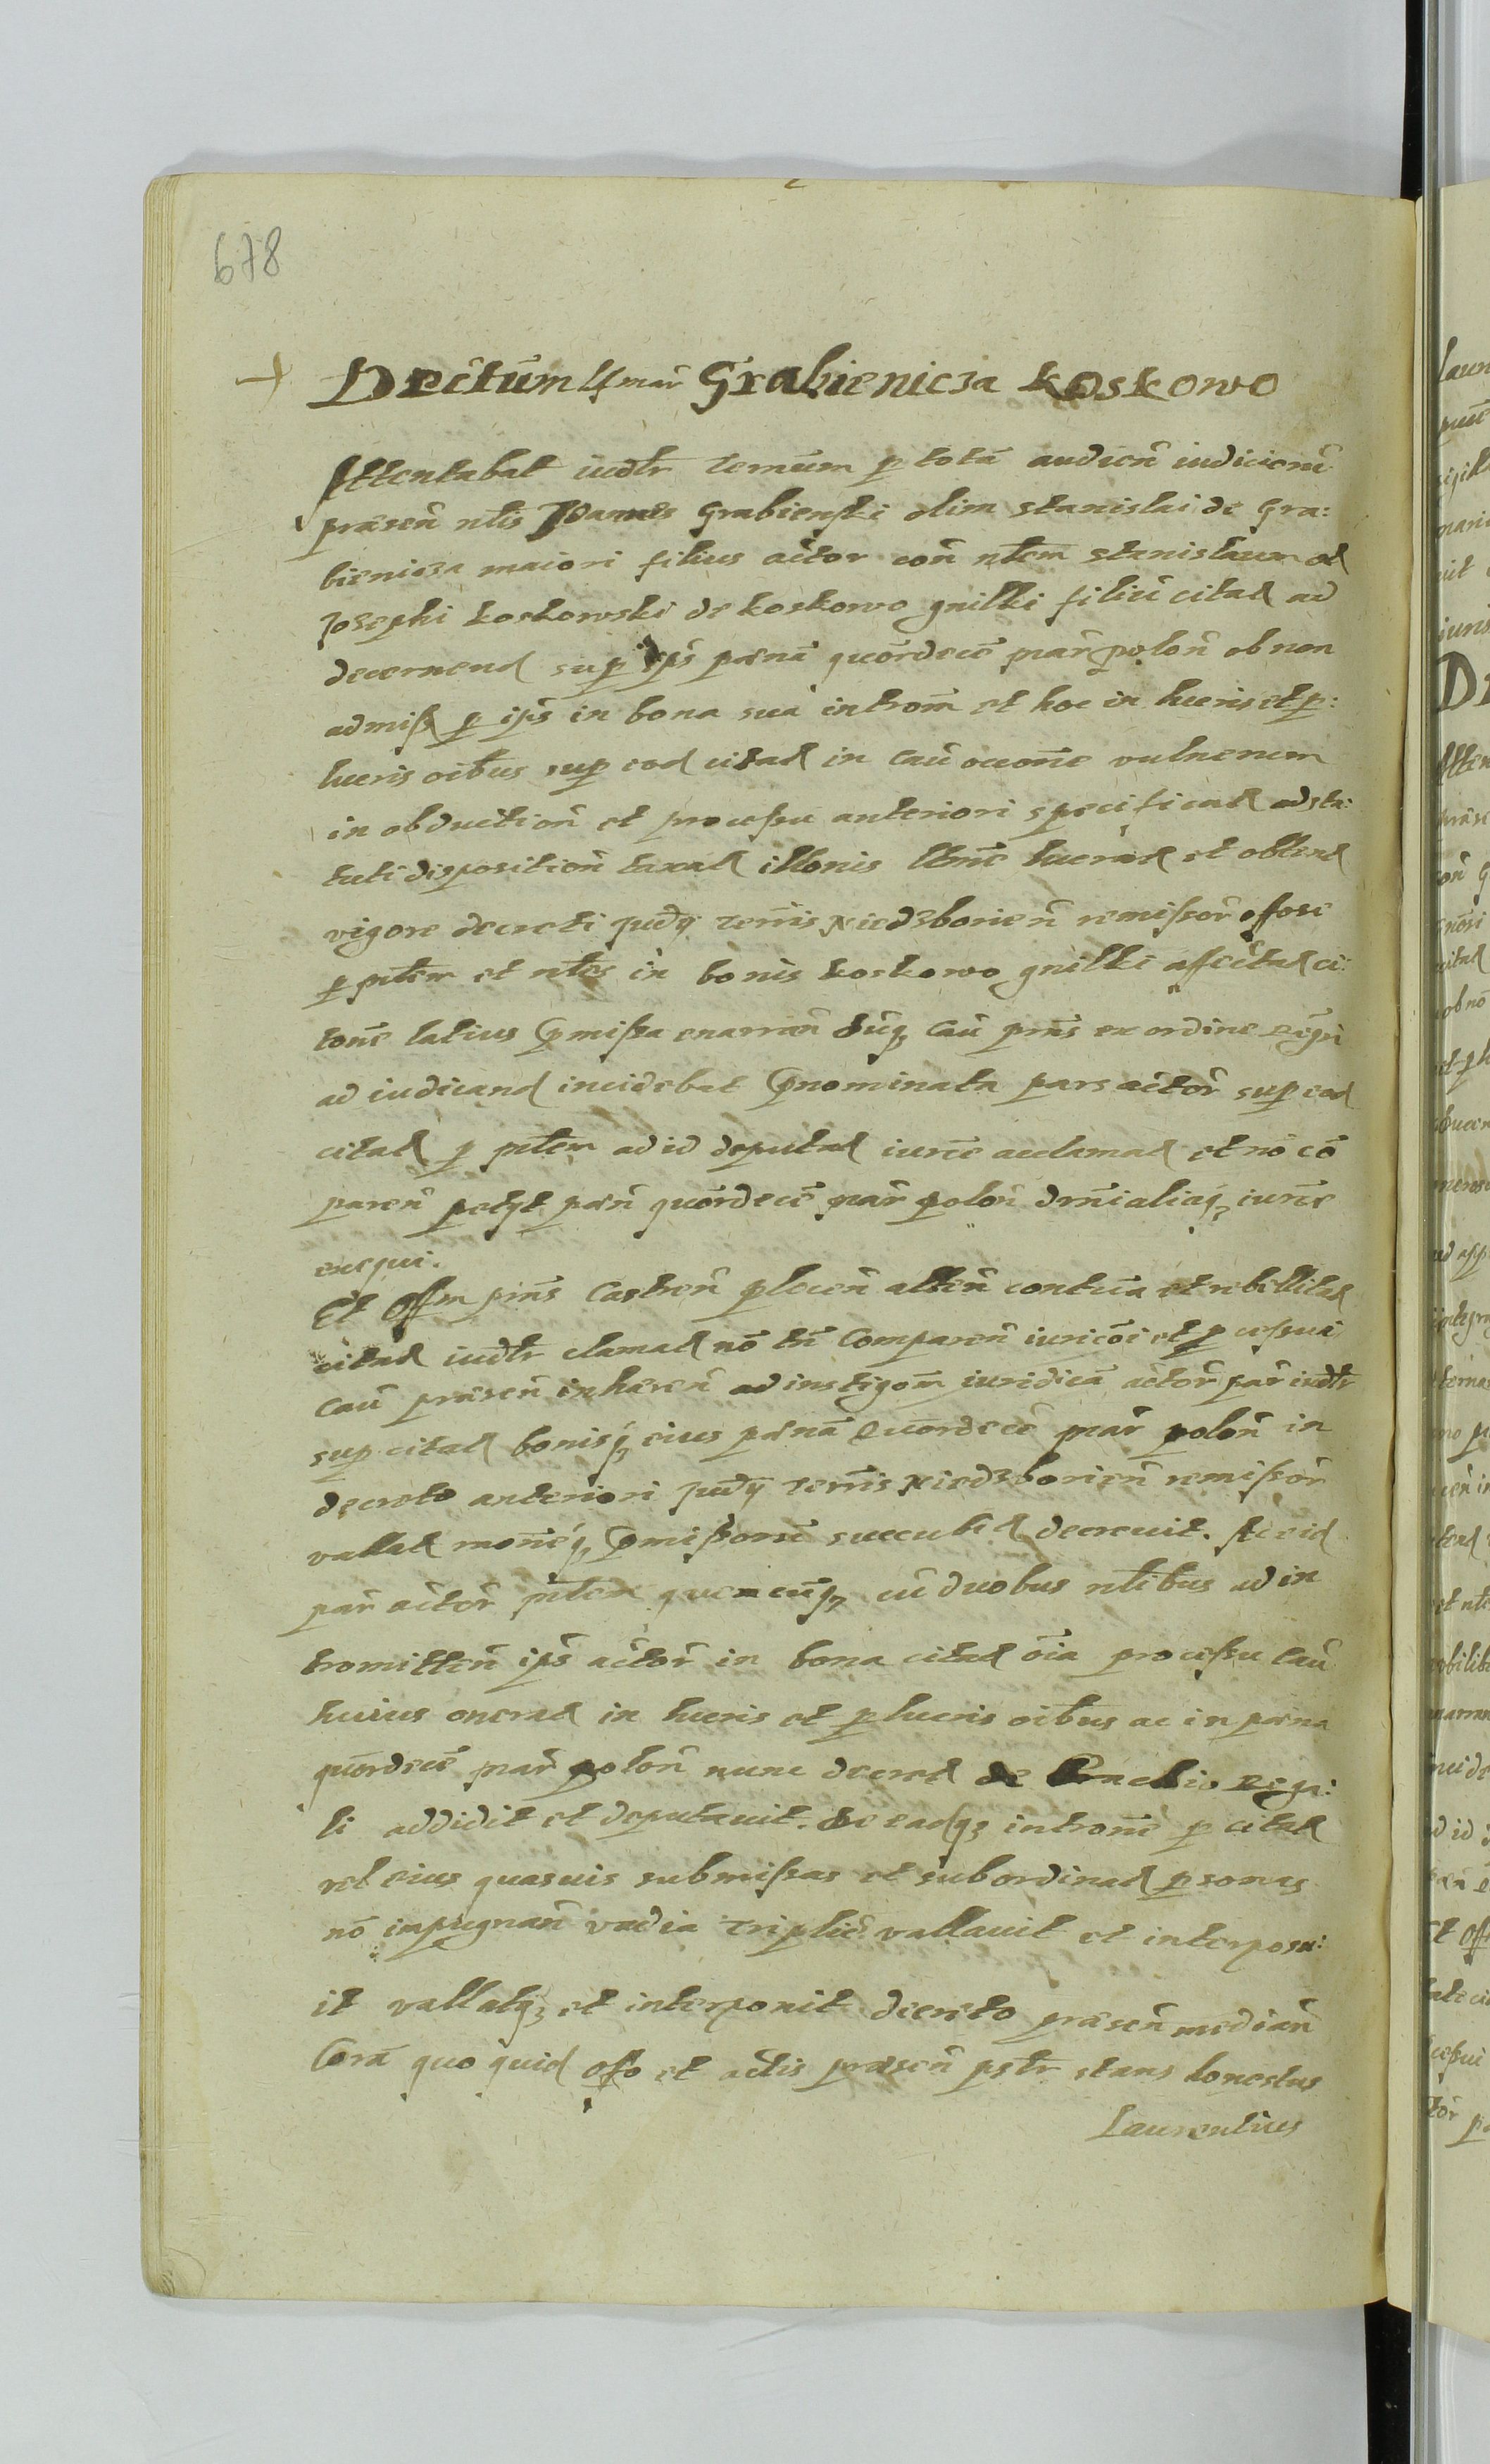 678
Decretum 14 mar̃ Grabienicza koskowo
Attentabat iudtr̃ termũm p totã audieñ iudicionẽ
præseñ nt̃is Joannes Grabienski olim Stanislai de Gra:
bienicza maiori filius actor coñ nt̃em Stanislaum ol
Josephi koskowski de koskowo gnilki filiũ citat ad
decernend sup ips pœnã quõrdecẽ mar̃ poloñ ob non
admiss p ips in bona sua introm̃ et hoc in lucris et p:
lucris oĩbus sup eod citat in caũ oc̃cone vulnerum
in obductioñ et processu anteriori specificat ad sta:
tuti dispositioñ taxat illonis lucrat et obtent
vigore decreti judÿ terr̃is Niedzborieñ remissor̃ offose
p mt̃em et nt̃es in bonis koskowo gnilki affictat ci:
tonẽ latius p̃missa enarrañ dũq₃ caũ prñs ex ordine regri
ad iudicand incidebat p̃nominata pars actor̃ sup eod
citat p mt̃em ad id deputat iurẽ acclamat et nõ cõ
pareñ petÿt pœñ quõrdecẽ mar̃ poloñ drñi aliaq₃ iurẽ
exequi.
Et Offm prñs Castreñ Ploceñ atteñ contũa et rebellitat
citat iudtr̃ clamat nõ tñ Compareñ iuricõi et p cessui
caũ præseñ inhæreñ ad instigom̃ iuridicã actor̃ par̃ iudtr̃
sup citat bonisq₃ eius pœnã quordecẽ mar̃ poloñ in
decreto anteriori judÿ terr̃is Niedzborieñ remissor̃
vallat p̃missorũ succubit decreuit. Ac eid
par̃ actor̃ mt̃em quemcũq₃ cũ duobus nt̃ibus ad in
tromitteñ ips actor̃ in bona citat oĩa processu caũ
huius onerat in lucris et plucris oĩbus ac in pœna
quõrdecẽ mar̃ poloñ nunc decret de brachio rega:
li addidit et deputauit. De eadq₃ intronẽ p citat
vel eius quasuis submissas et subordinat psonas
nõ impugnañ vadia triplic̃ vallauit et interposu:
it vallatq₃ et interponit decreto præseñ mediañ
Corã quo quid offo et actis præseñ pstr̃ stans honestus
Laurentius